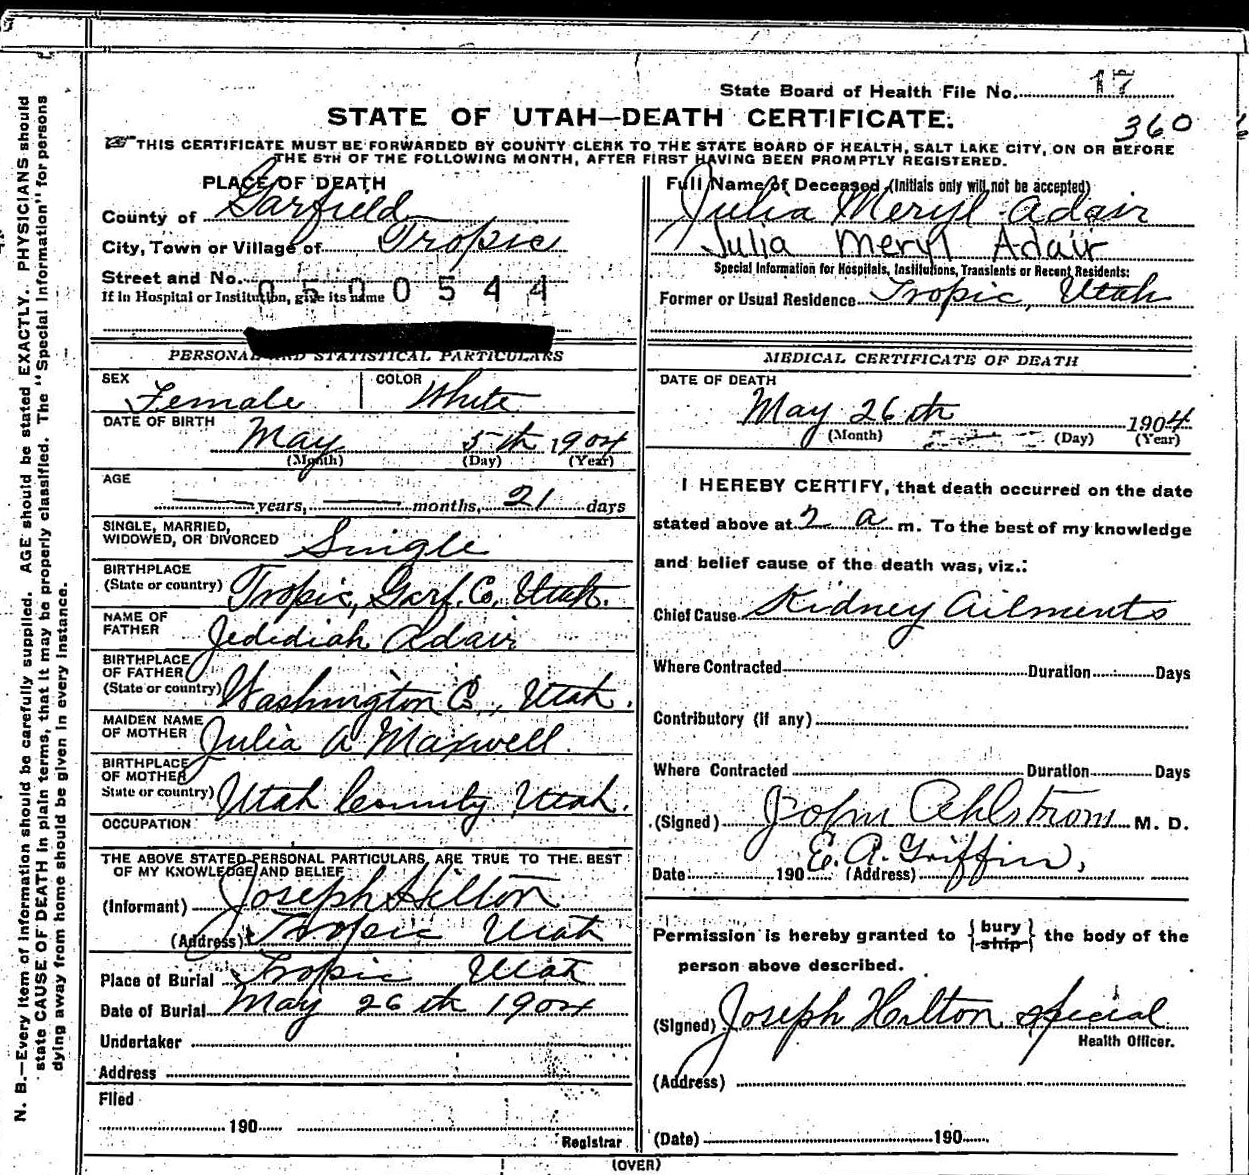 State Board of Health File No. 17
STATE OF UTAH—DEATH CERTIFICATE.
360
THIS CERTIFICATE MUST BE FORWARDED BY COUNTY CLERK TO THE STATE BOARD OF HEALTH, SALT LAKE CITY, ON OR BEFORE
THE 5TH OF THE FOLLOWING MONTH, AFTER FIRST HAVING BEEN PROMPTLY REGISTERED.
PLACE OF DEATH
County of Garfield
City, Town or Village of Tropic
Street and No.
If in Hospital or Institution, give its name
0500544
PERSONAL AND STATISTICAL PARTICULARS
SEX Female COLOR White
DATE OF BIRTH May 5th 1904
(Month) (Day) (Year)
AGE
years, months, 21 days
SINGLE, MARRIED,
WIDOWED, OR DIVORCED Single
BIRTHPLACE
(State or country) Tropic, Garf. Co, Utah.
NAME OF
FATHER Jedidiah Adair
BIRTHPLACE
OF FATHER
(State or country) Washington Co, Utah.
MAIDEN NAME
OF MOTHER Julia A Maxwell
BIRTHPLACE
OF MOTHER
State or country) Utah County Utah.
OCCUPATION
THE ABOVE STATED PERSONAL PARTICULARS, ARE TRUE TO THE BEST
OF MY KNOWLEDGE AND BELIEF
(Informant) Joseph Hilton
(Address) Tropic Utah
Place of Burial Tropic Utah
Date of Burial May 26th 1904
Undertaker
Address
Filed
190
Registrar
Full Name of Deceased (Initials only will not be accepted)
Julia Meryl Adair
Julia Meryl Adair
Special Information for Hospitals, Institutions, Transients or Recent Residents:
Former or Usual Residence Tropic, Utah
MEDICAL CERTIFICATE OF DEATH
DATE OF DEATH
May 26th 1904
(Month) (Day) (Year)
I HEREBY CERTIFY, that death occurred on the date
stated above at 2 a m. To the best of my knowledge
and belief cause of the death was, viz.:
Chief Cause Kidney Ailments
Where Contracted Duration Days
Contributory (if any)
Where Contracted Duration Days
(Signed) John Ahlstrom M. D.
E. A. Griffin,
Date 190 (Address)
Permission is hereby granted to {bury
ship} the body of the
person above described.
(Signed) Joseph Hilton special
Health Officer.
(Address)
(Date) 190
(OVER)
N. B.—Every item of information should be carefully supplied. AGE should be stated EXACTLY. PHYSICIANS should
state CAUSE OF DEATH in plain terms, that it may be properly classified. The "Special Information" for persons
dying away from home should be given in every instance.